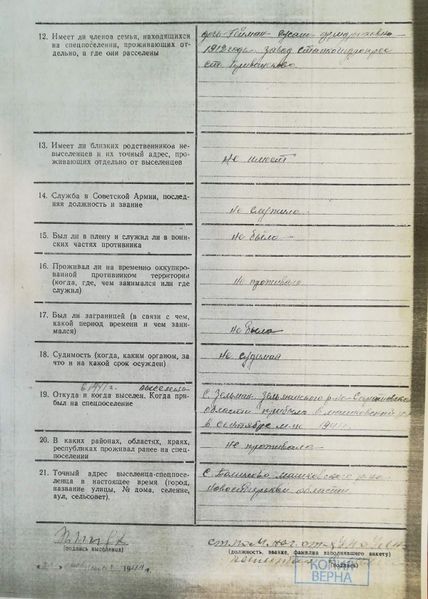 12. Имеет ли членов семьи, находящихся
на спецпоселении, проживающих от-
дельно, а где они расселены
1912 года. завод
ст.
13. Имеет ли близких родственников не-
выселенцев и их точный адрес, про-
живающих отдельно от выселенцев
не имеет
14. Служба в Советской Армии, послед-
няя должность и звание
не служила
15. Был ли в плену и служил ли в воин-
ских частях противника
не была
16. Проживал ли на временно оккупиро-
ванной противником территории
(когда, где, чем занимался или где
служил)
не проживала
17. Был ли заграницей (в связи с чем,
какой период времени и чем зани-
мался)
не была
18. Судимость (когда, каким органом, за
что и на какой срок осужден)
не судимая
выселена
19. Откуда и когда выселен. Когда при-
был на спецпоселение
с. Зельман Зельманского р-на Саратовской
области прибыла в
в сентябре м-це 1941
20. В каких районах, областях, краях,
республиках проживал ранее на спец-
поселении
не проживала
21. Точный адрес выселенца-спецпосе-
ленца в настоящее время (город,
название улицы, № дома, селение,
аул, сельсовет).
с.
р-на
Новосибирской области
(подпись выселенца)
(должность, звание, фамилия заполнявшего анкету)
(подпись)
КОПИЯ
ВЕРНА